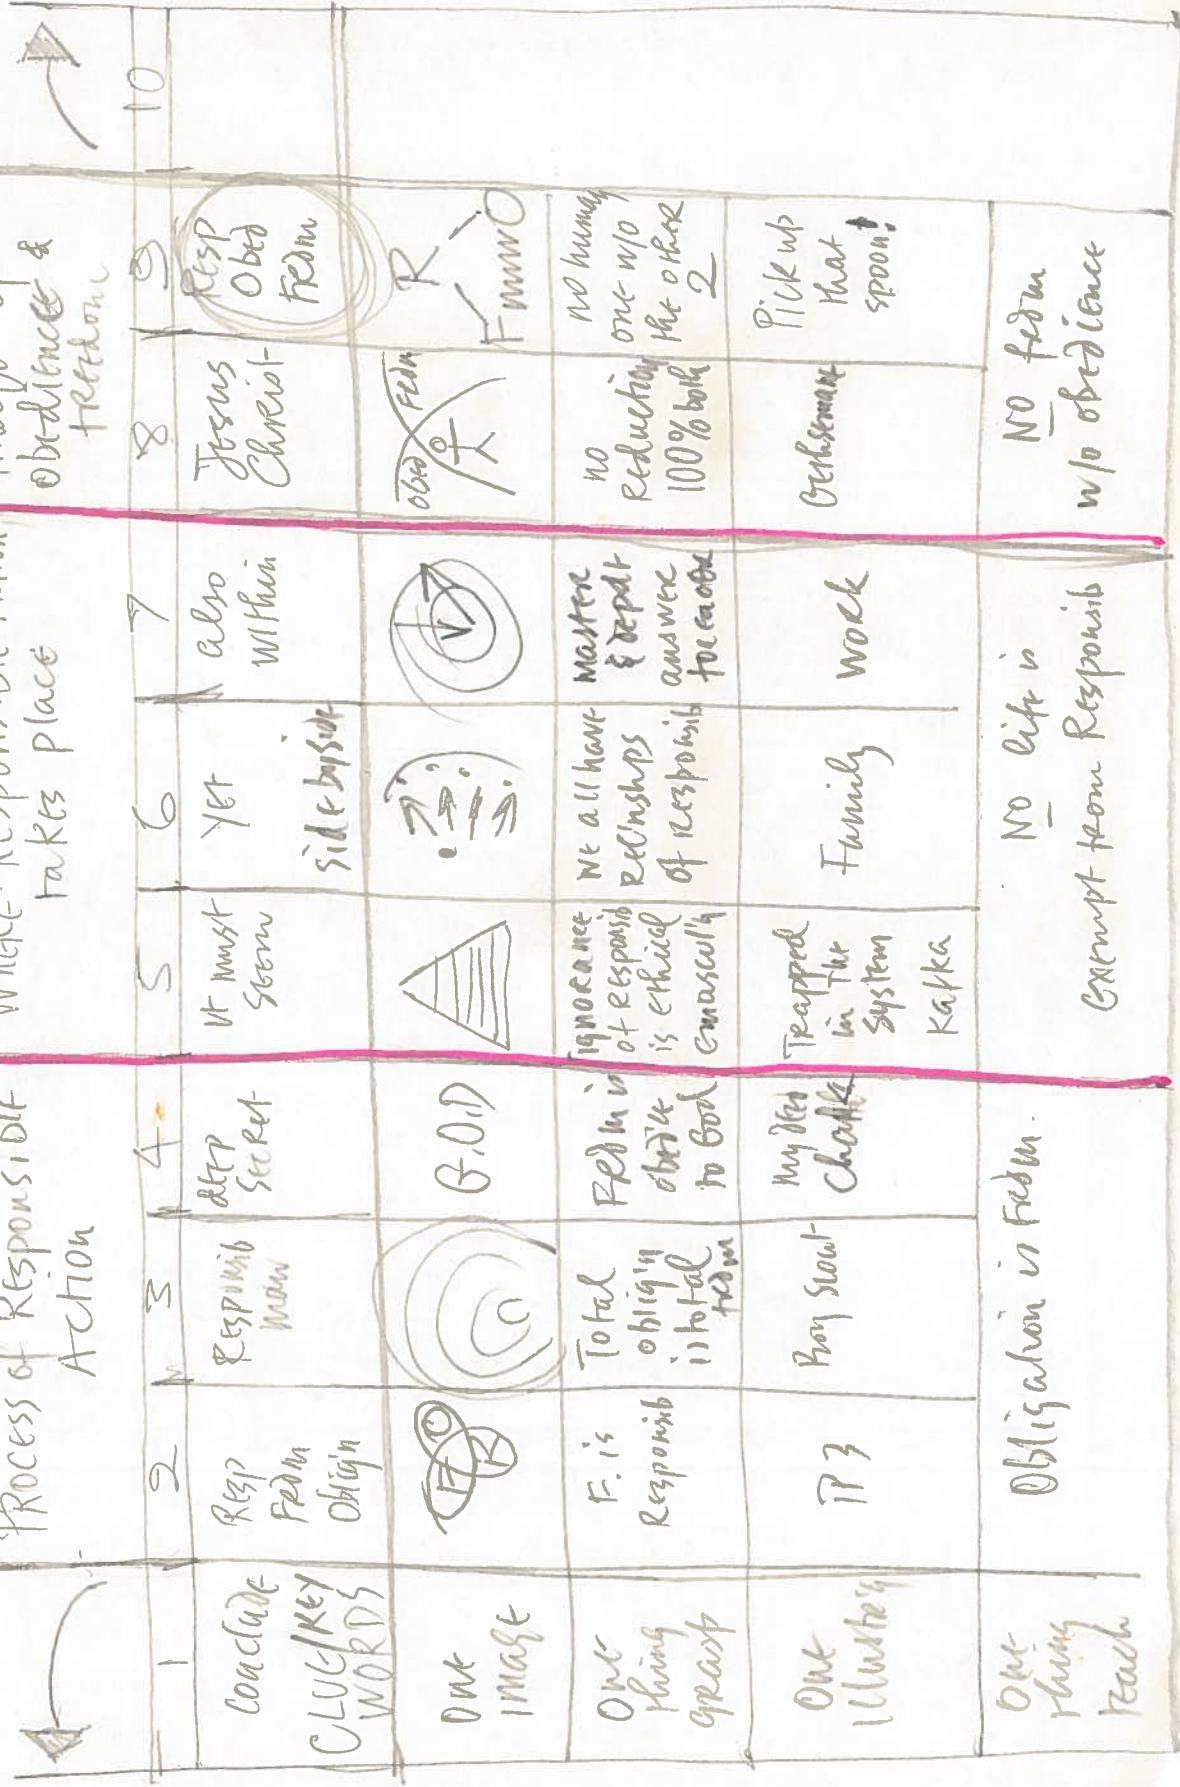 Process of Responsible
Action
takes place
obedience &
freedom
1 2 3 4 5 6 7 8 9 10
conclude
CLUE/KEY
WORDS
Resp
Frdm
Oblig'n
Responsib
man
deep
secret
It must
seem
Yet
side by side
also
within
Jesus
Christ
Resp
Obed
Frdm
One
image
F R O
G.O.D
Obed Frdm
R
F O
One
thing
grasp
F. is
Responsib
Total
oblig'n
is total
frdm
FRDm is
obed'ce
to God
ignorance
of responsib
is ethical
emascul'n
We all have
relinships
of responsib
master
& dept
answer
for each
no
reduction
100% both
no human
one w/o
the other
2
One
illustr'n
P 3
Boy Scout
my dad
Trapped
in the
system
Kafka
Family
work
Gethsemane
Pick up
that
spoon!
One
thing
teach
Obligation is Frdm.
No life is
exempt from Responsib
No frdm
w/o obedience